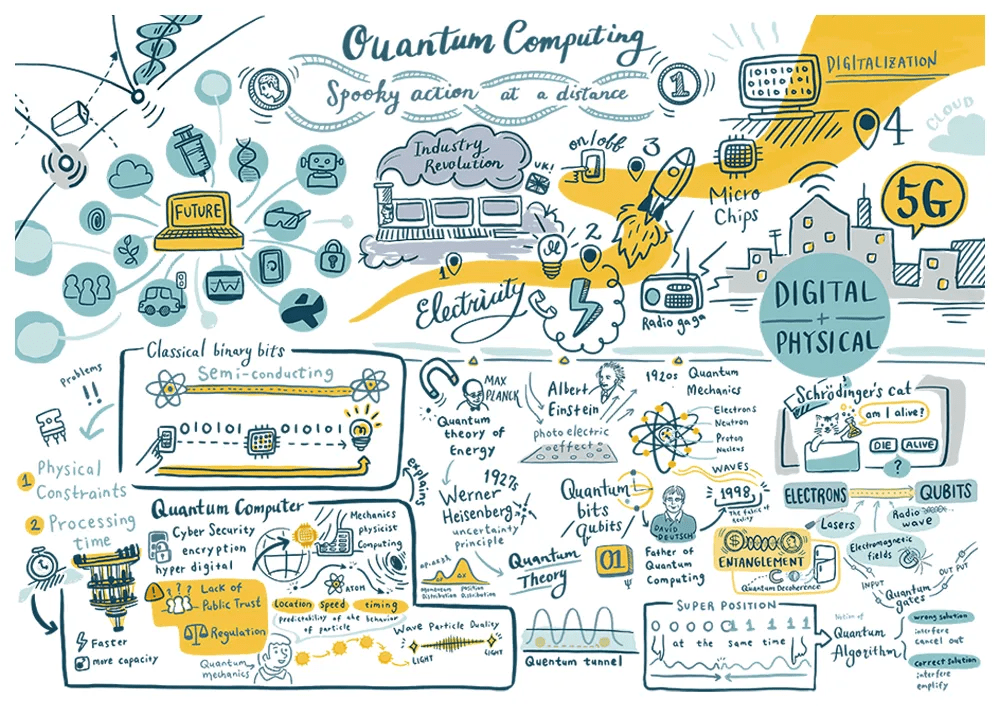 Quantum Computing
Spooky action at a distance
1
DIGITALIZATION
CLOUD
Industry
Revolution
UK!
on/off
3
4
Micro
Chips
5G
FUTURE
1
2
Electricity
Radio gaga
DIGITAL
+
PHYSICAL
Problems
!!
1 Physical
Constraints
2 Processing
time
Faster
more capacity
Classical binary bits
Semi-conducting
010101
010101
explains
Quantum Computer
Cyber Security
encryption
hyper digital
Mechanics
physicist
Computing
ATOM
! ? ? ?
Lack of
Public Trust
Regulation
Location speed timing
predictability of the behavior
of particle
Quantum
mechanics
Wave Particle Duality
LIGHT
LIGHT
MAX
PLANCK
Quantum
theory of
Energy
Albert
Einstein
photo electric
effect
1920s Quantum
Mechanics
Electrons
Neutron
Proton
Nucleus
WAVES
1927s
Werner
Heisenberg
uncertainty
principle
Momentum
Distribution
Position
Distribution
Quantum
Theory
Quantum
bits
Qubits
01
DAVID
DEUTSCH
Father of
Quantum
Computing
1998
The fabric of
Reality
Quentum tunnel
Schrödinger's cat
am I alive?
DIE ALIVE
?
ELECTRONS
QUBITS
Lasers
Radio
wave
Electromagnetic
fields
ENTANGLEMENT
Quantum Decoherence
INPUT
OUT PUT
Quantum
gates
SUPER POSITION
0 0 0 0 0 1 1 1 1 1
at the same time
Quantum
Algorithm
wrong solution
interfere
cancel out
correct solution
interfere
emplify